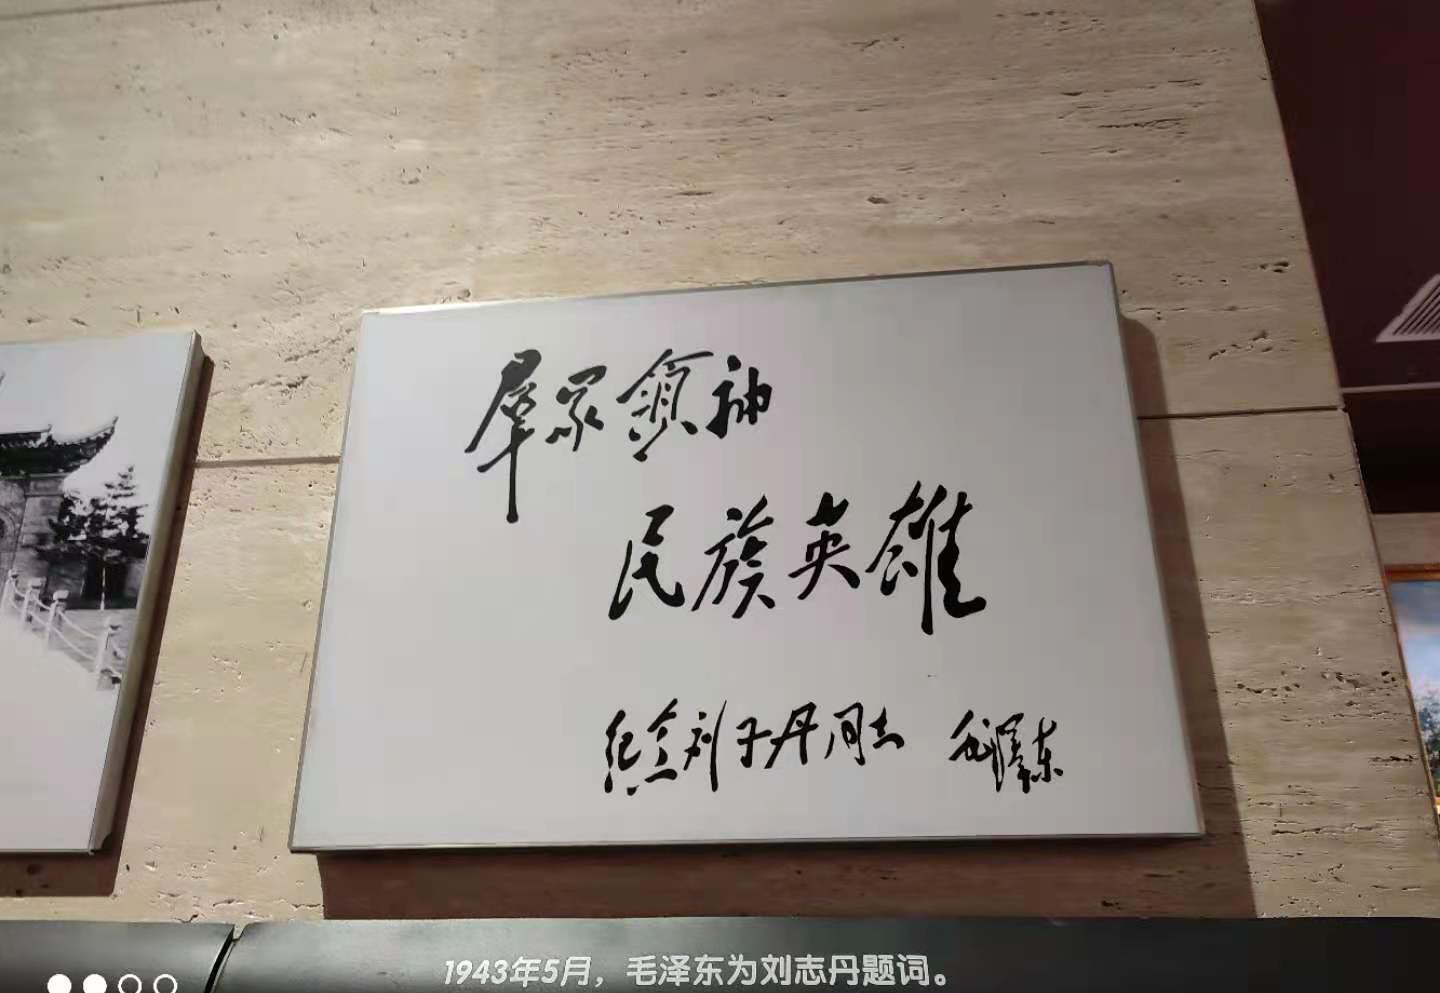 羣众领袖
民族英雄
纪念刘子丹同志 毛泽东
1943年5月，毛泽东为刘志丹题词。